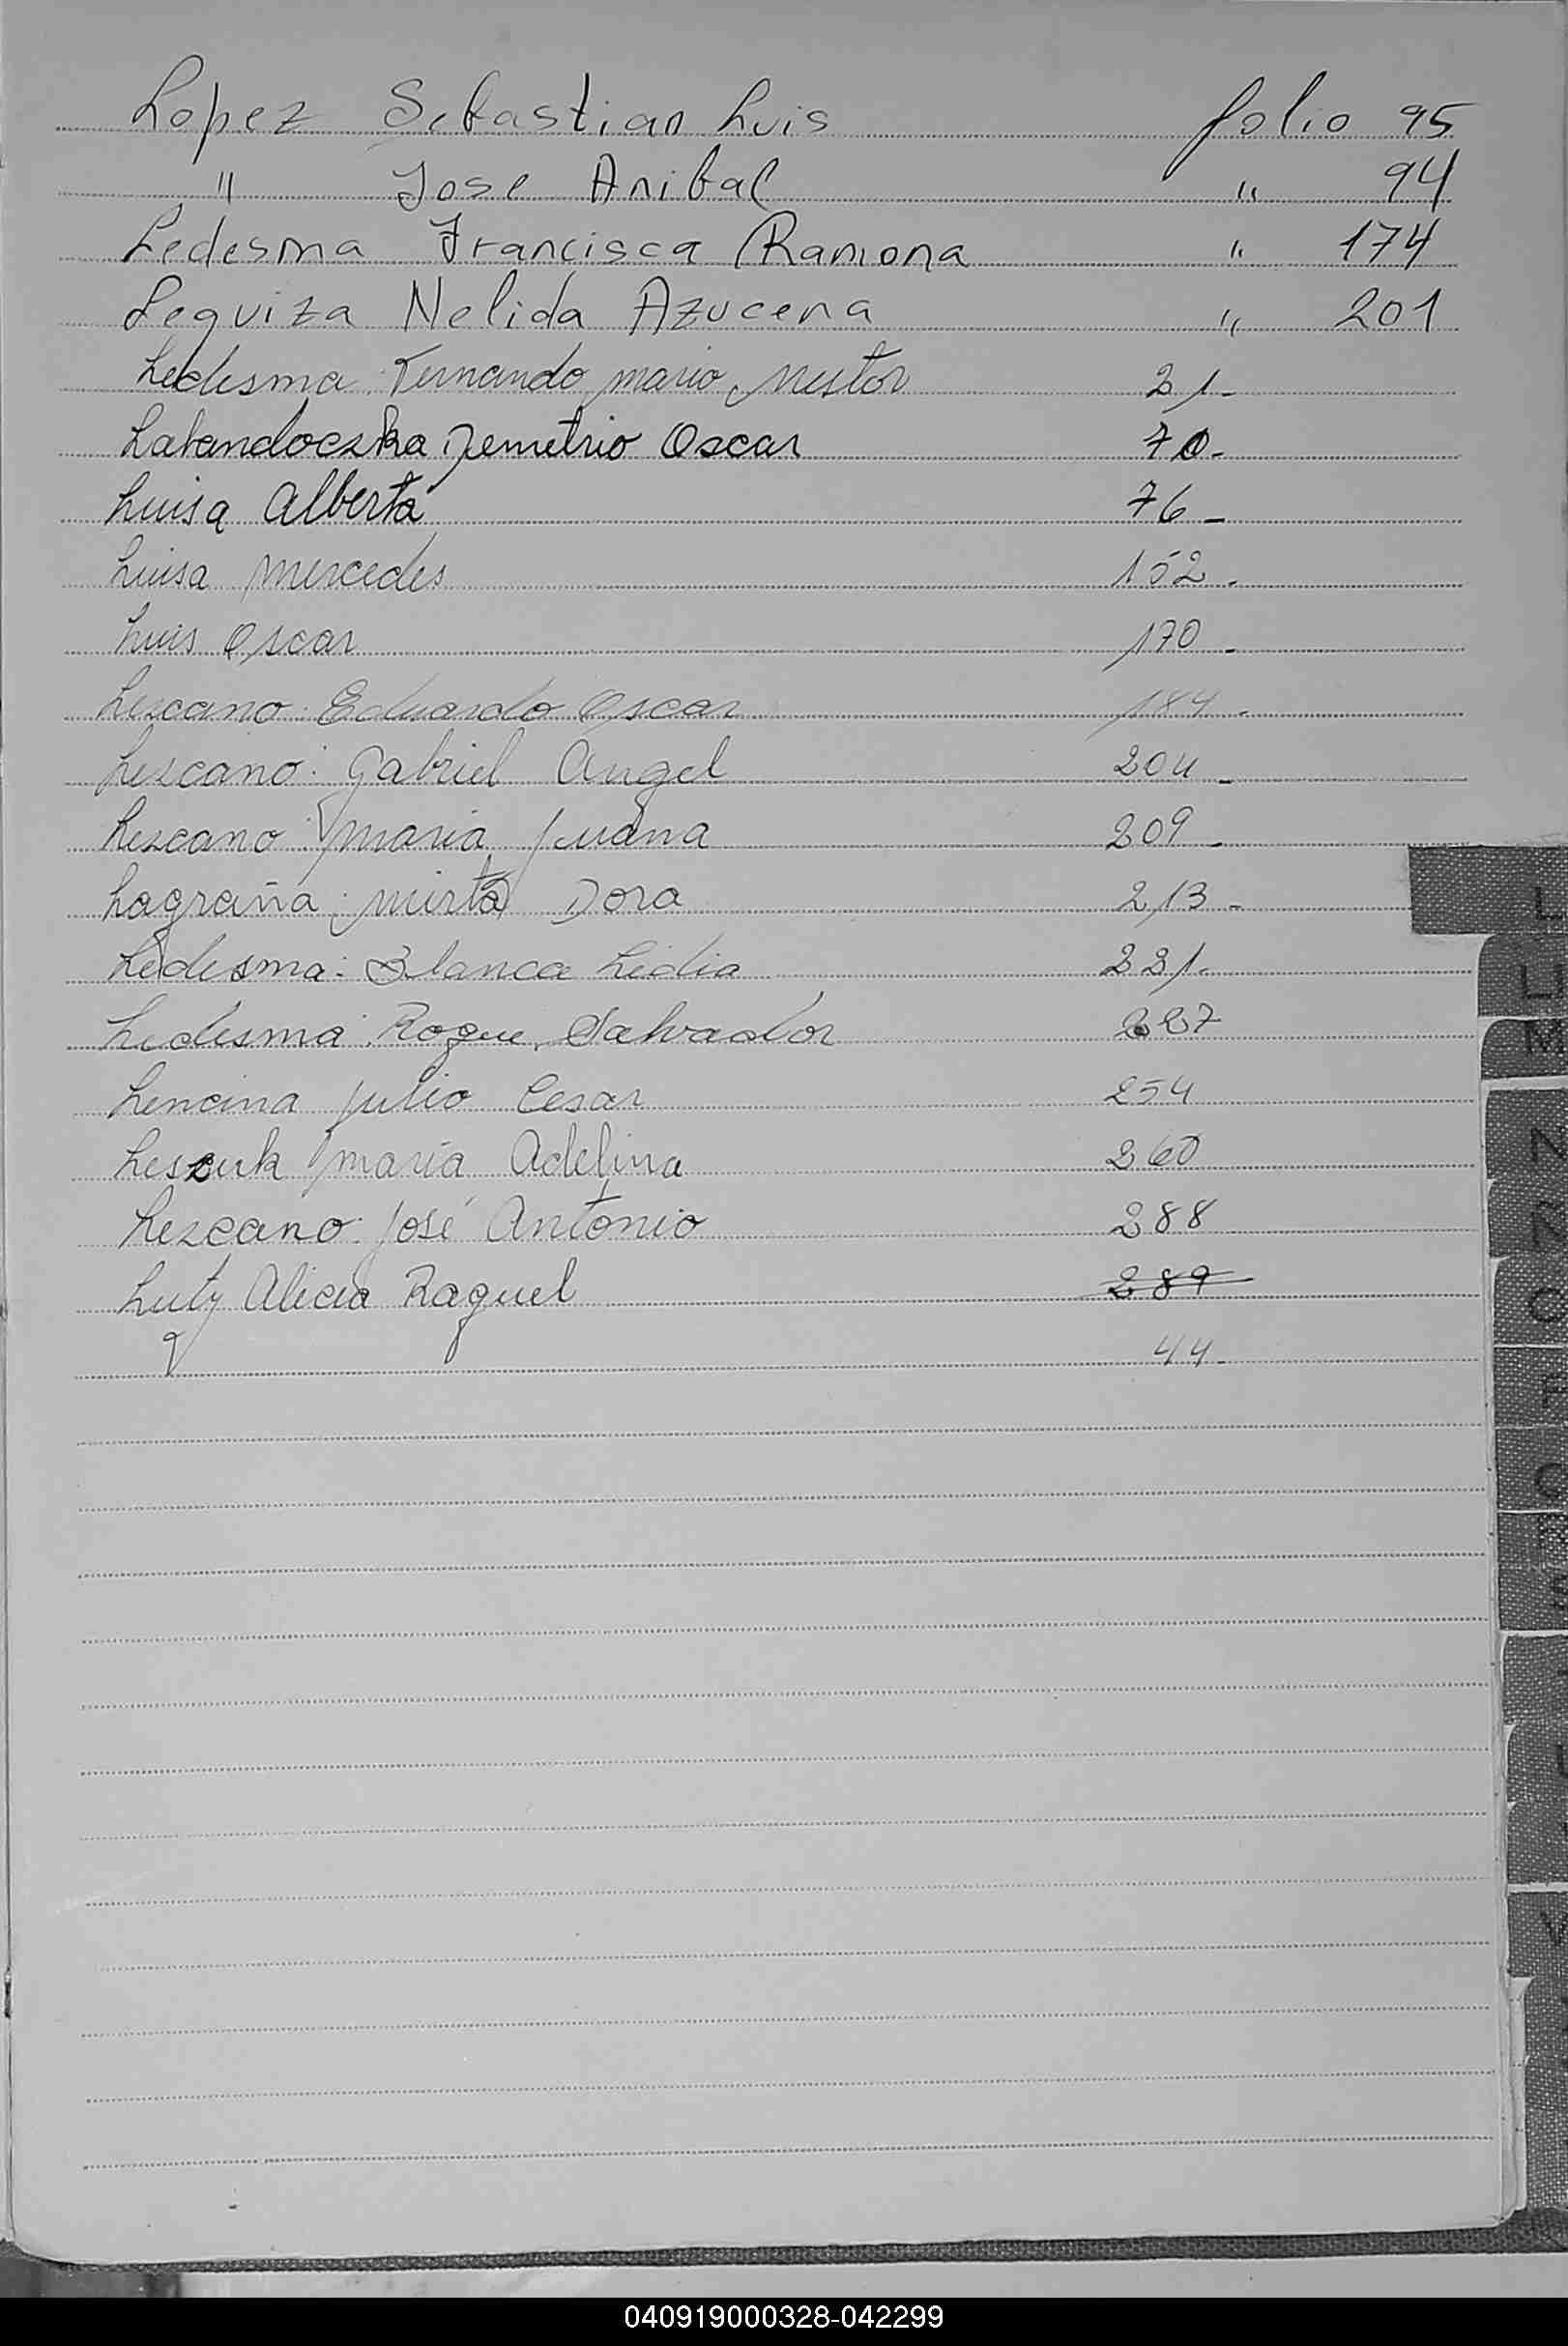 Lopez Sebastian Luis folio 95
" Jose Anibal " 94
Ledesma Francisca Ramona " 174
Leguiza Nelida Azucena " 201
Ledesma: Fernando mario Nestor 21-
Latandoczka Demetrio Oscar 70-
Luisa Alberta 76-
Luisa mercedes 152-
Luis Oscar 170-
Lezcano: Eduardo Oscar 184-
Lezcano: Gabriel Angel 204-
Lezcano: maria Juana 209-
Lagraña: mirta Dora 213-
Ledesma: Blanca Lidia 221-
Ledesma: Roque Salvador 227
Lencina Julio Cesar 254
Leszuk maria Adelina 260
Lezcano: José Antonio 288
Luty Alicia Raquel 289
44-
L
L
M
N
O
V
040919000328-042299